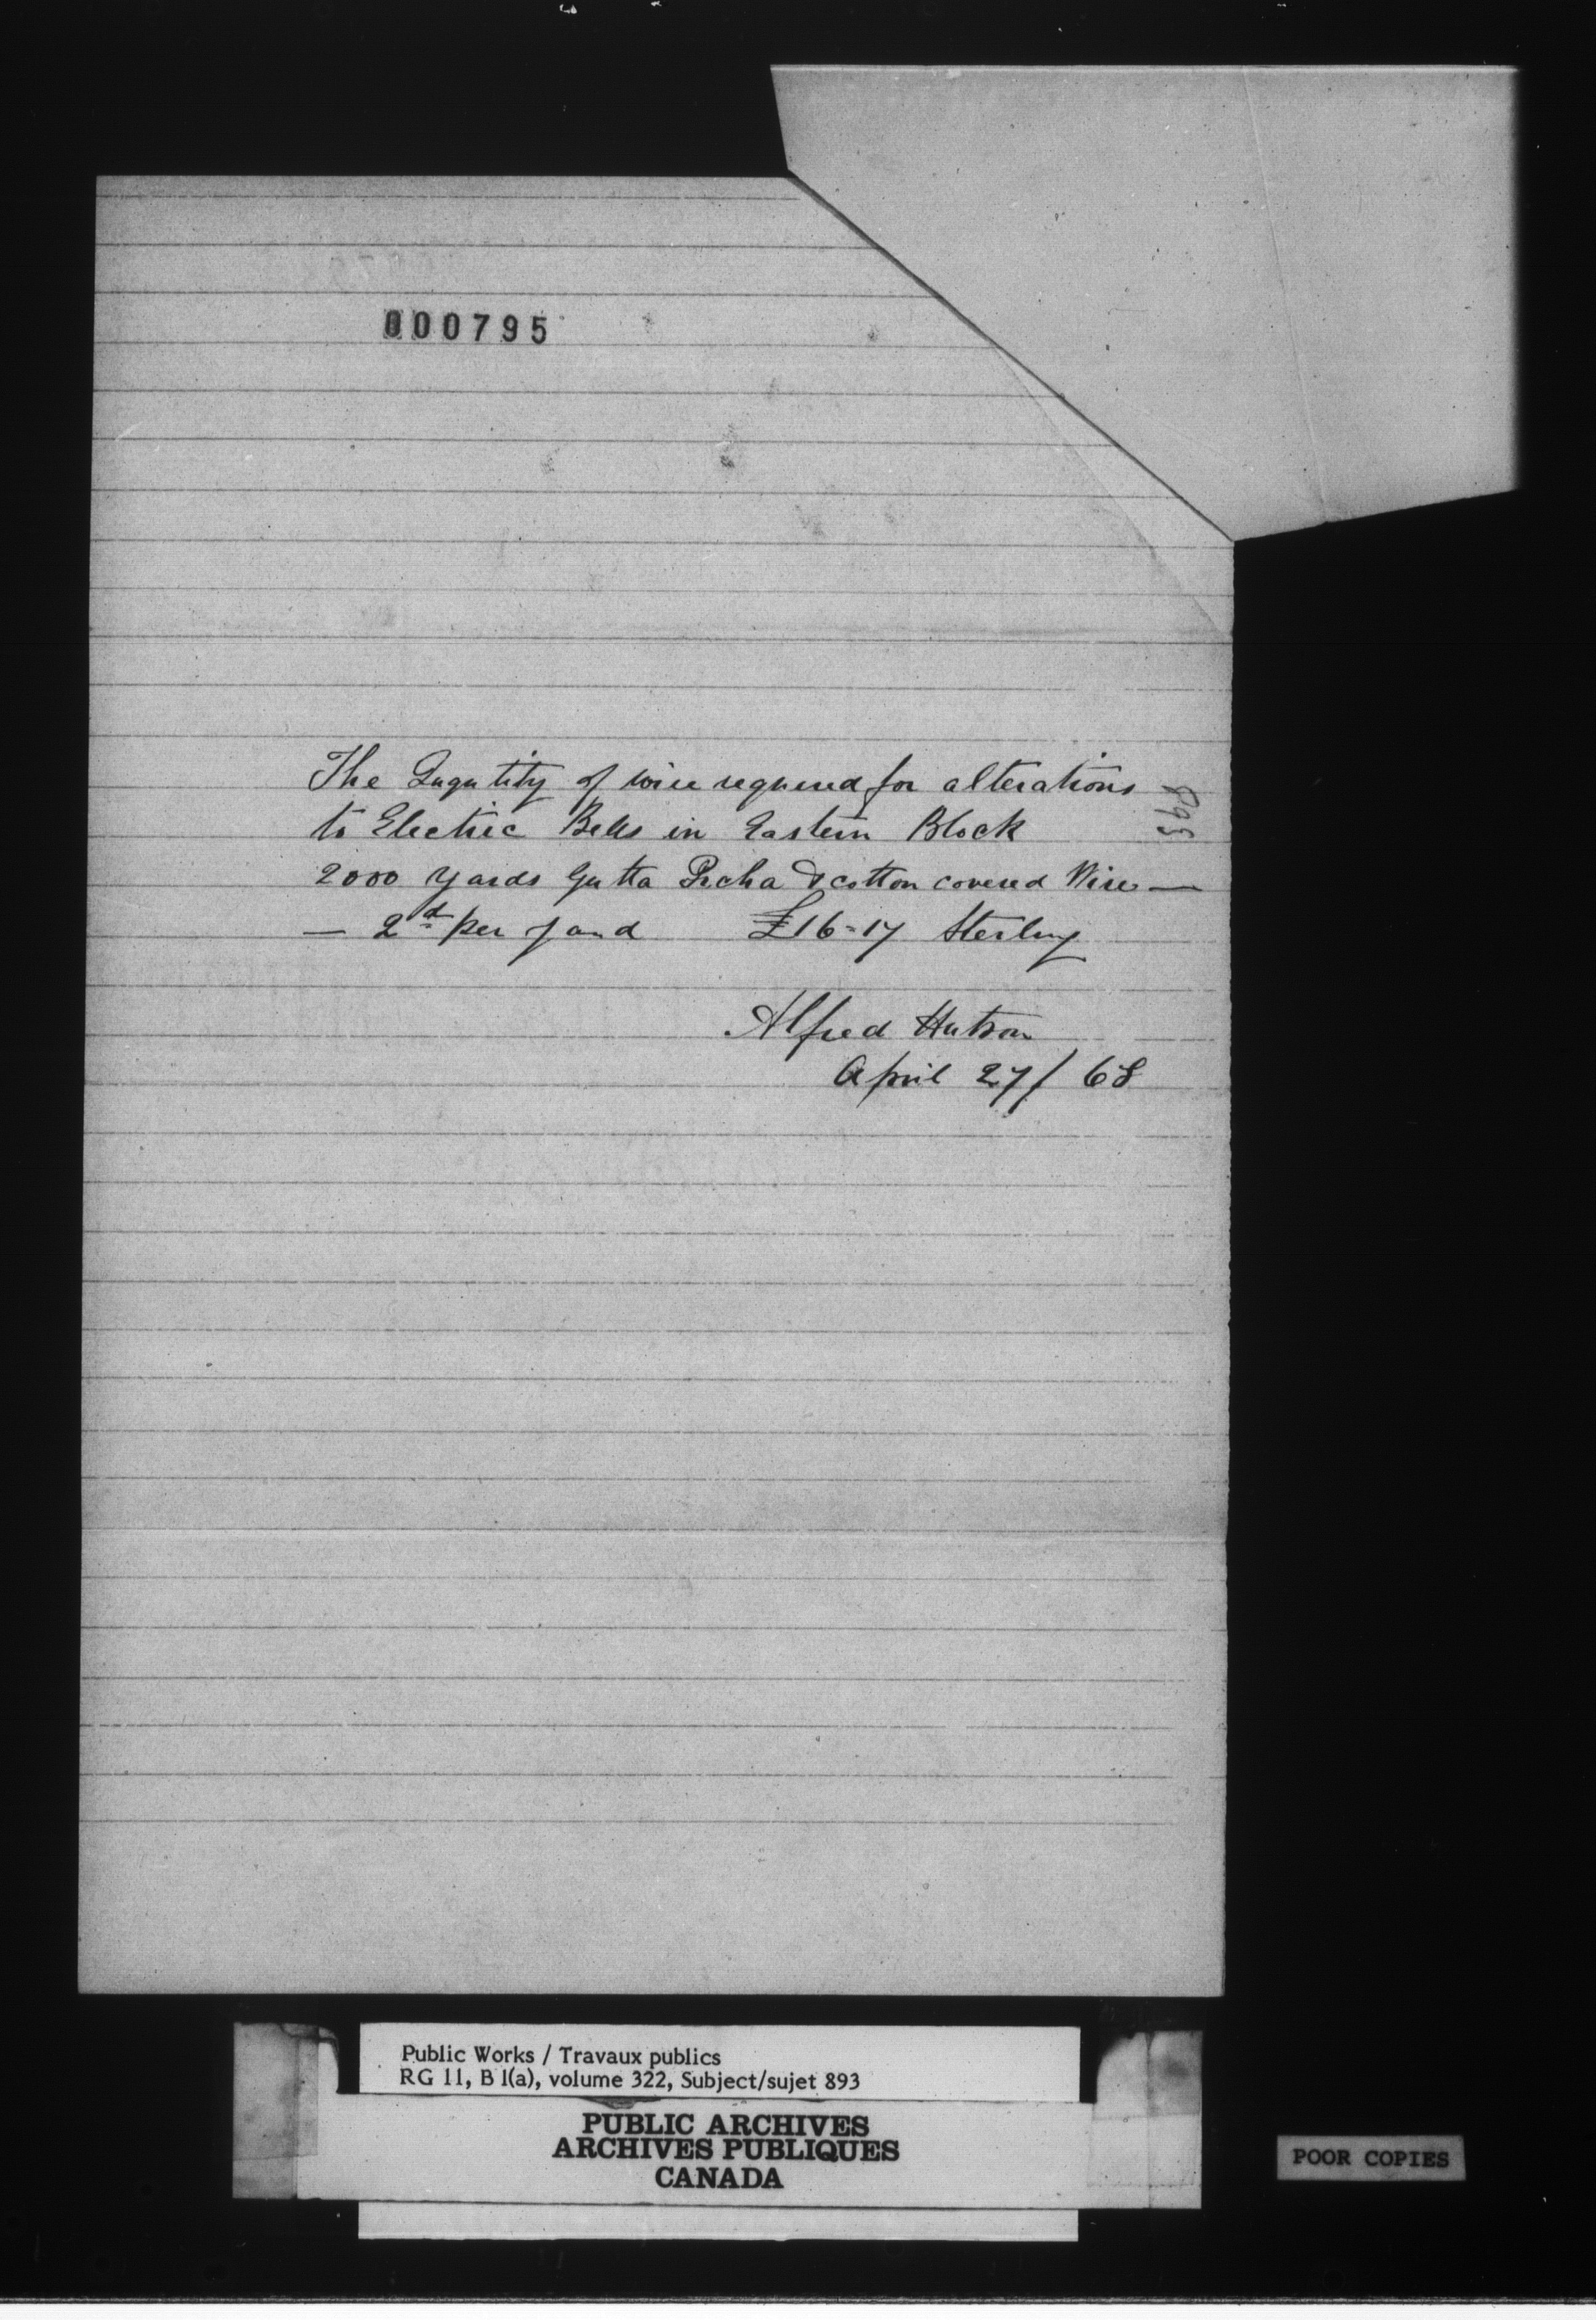 000795
The Ququtity of wire required for alterations
to Electric Bells in Eastern Block
2000 yards Gutta Percha & cotton covered Wire —
— 2d per yard £16=17 Sterling
Alfred Hutson
April 27/68
893
Public Works / Travaux publics
RG 11, B 1(a), volume 322, Subject/sujet 893
PUBLIC ARCHIVES
ARCHIVES PUBLIQUES
CANADA
POOR COPIES